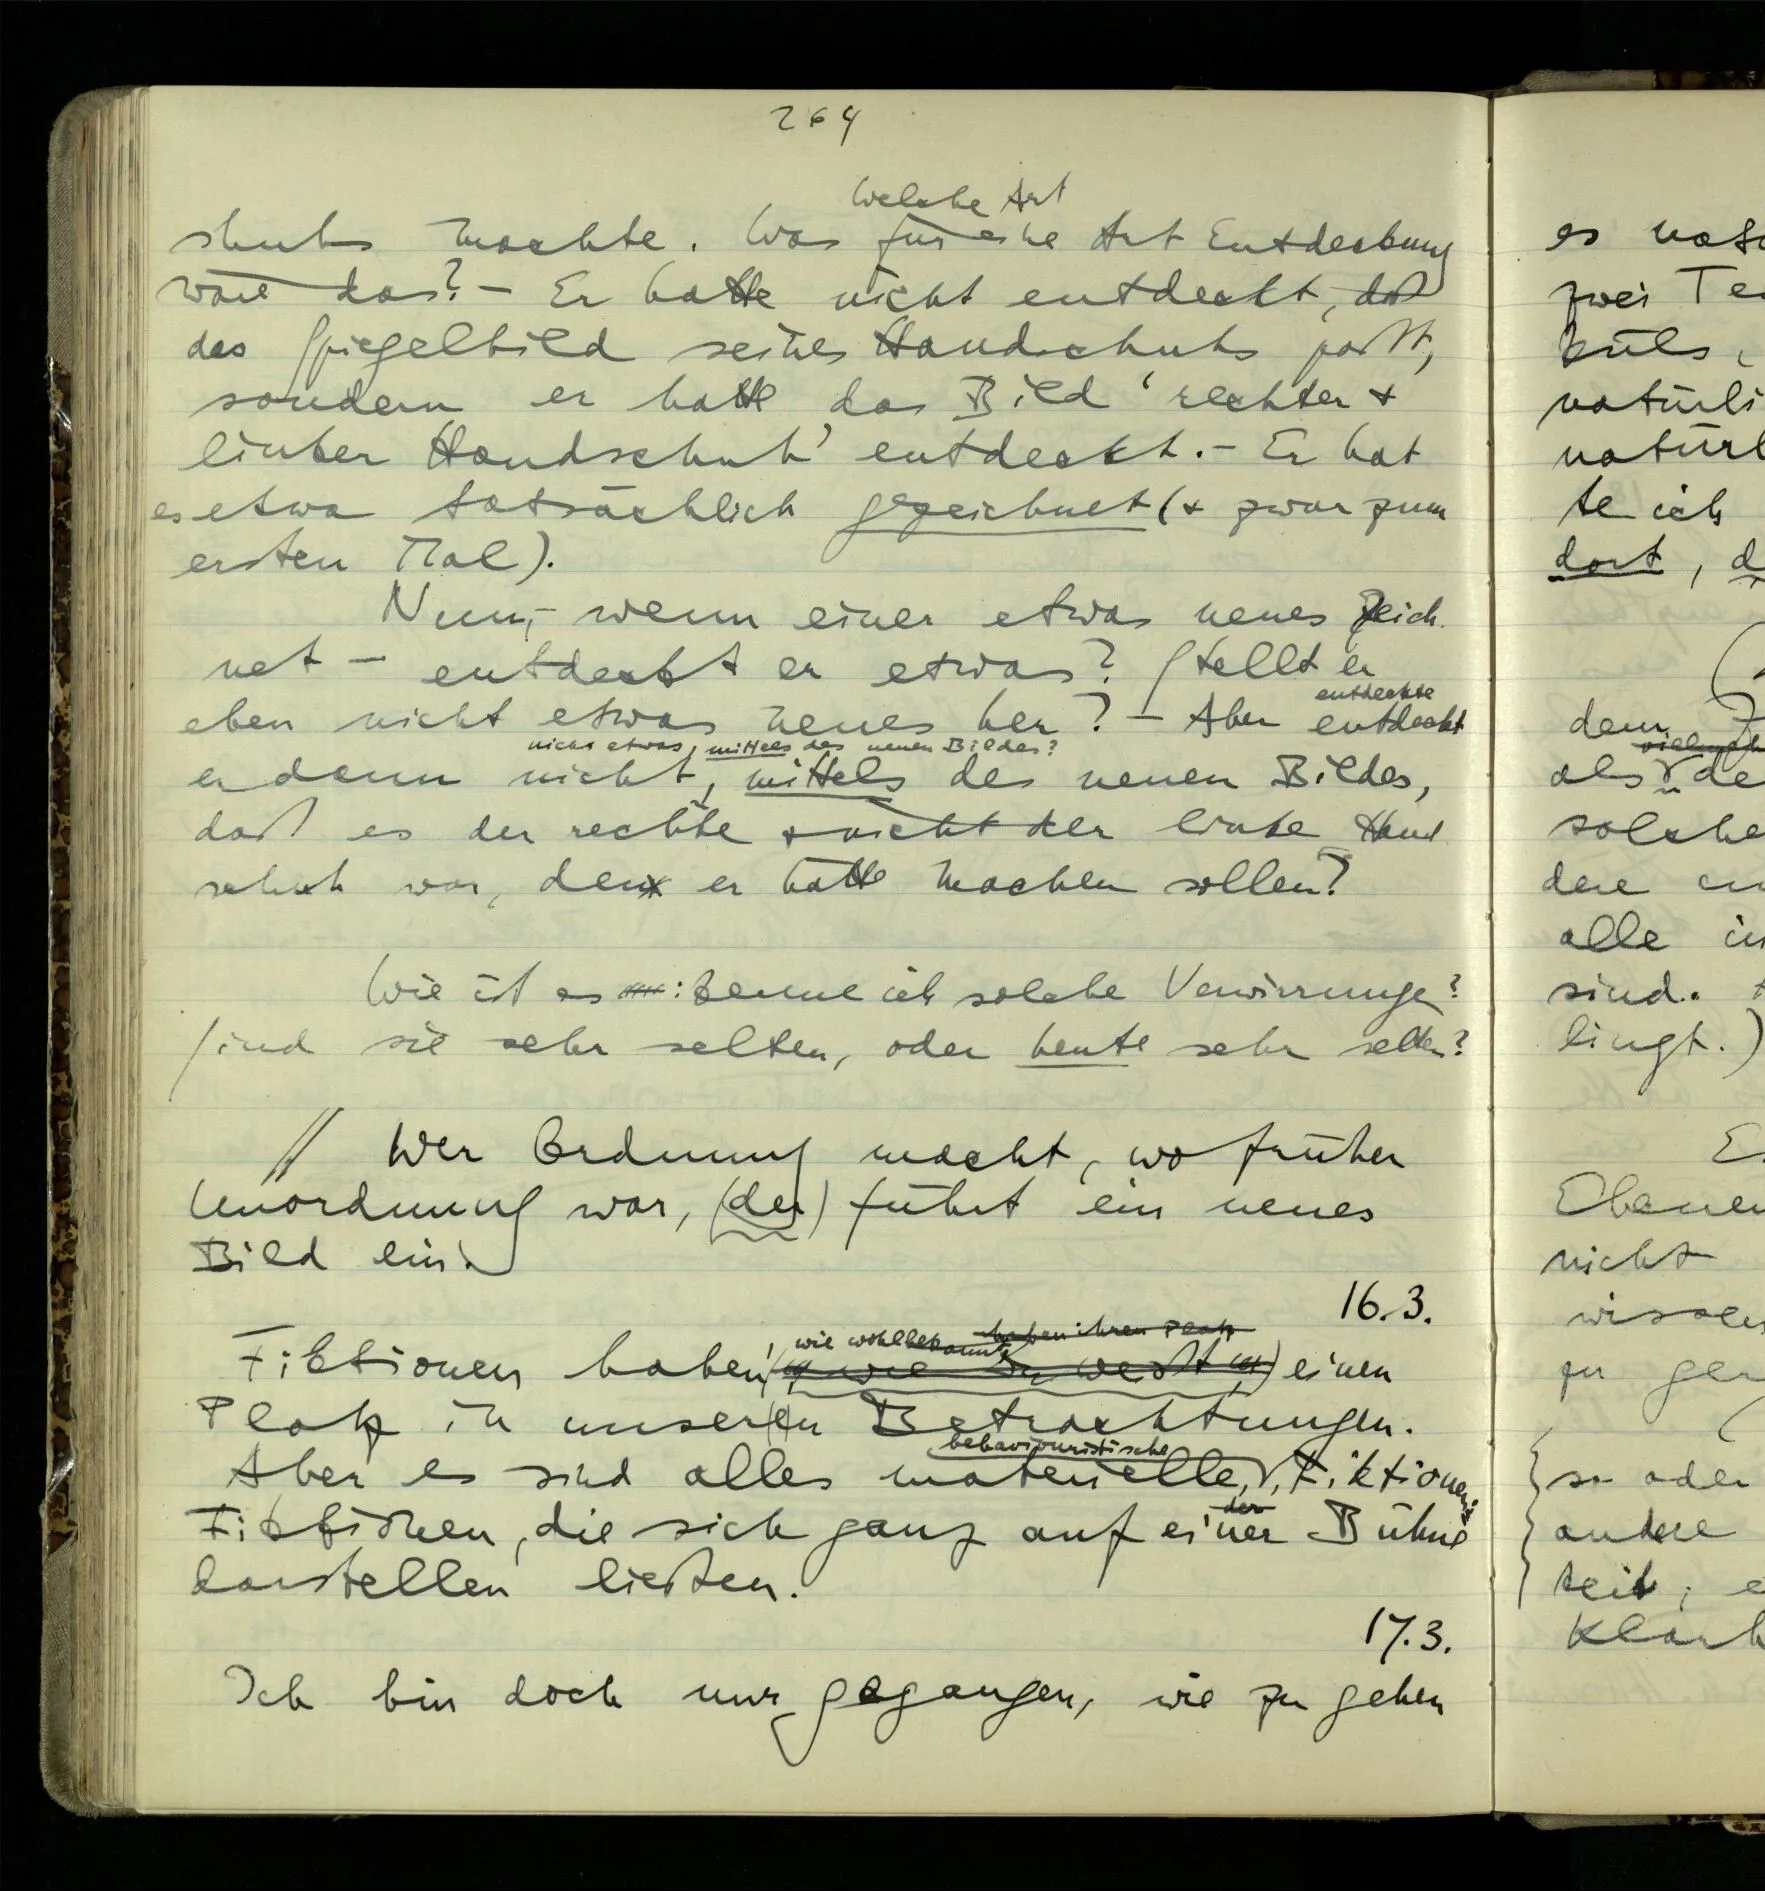 264
Welche Art
schuhs machte. Was für eine Art Entdeckung
wäre das? – Er hatte nicht entdeckt, daß
das Spiegelbild seines Handschuhs paßt,
sondern er hatte das Bild ‘rechter &
linker Handschuh’ entdeckt. – Er hat
es etwa tatsächlich gezeichnet (& zwar zum
ersten Mal).
Nun, – wenn einer etwas neues zeich-
net – entdeckt er etwas? Stellt er
eben nicht etwas neues her? – Aber entdeckt
entdeckte
nicht etwas, mittels des neuen Bildes?
er denn nicht, mittels des neuen Bildes,
daß es der rechte & nicht der linke Hand
schuh war, den er hätte machen sollen?
Wie ist es : kenne ich solche Verwirrungen?
Sind sie sehr selten, oder heute sehr selten?
// Wer Ordnung macht, wo früher
Unordnung war, (der) führt ein neues
Bild ein.
16.3.
wie wohlbekannt haben ihren Platz
Fiktionen haben (wie Du weißt) einen
Platz in unseren Betrachtungen.
behaviouristische
Aber es sind alles materielle, Fiktionen;
der
Fiktionen, die sich ganz auf einer Bühne
darstellen ließen.
17.3.
Ich bin doch nur gegangen, wie zu gehen
es
zwei
natürli
te ich
dort, d
dem
vielmehr
als de
solche
dere
alle
sind.
lingt.)
Ebenen
nicht
zu
so oder
andere
keit; e
Klarh